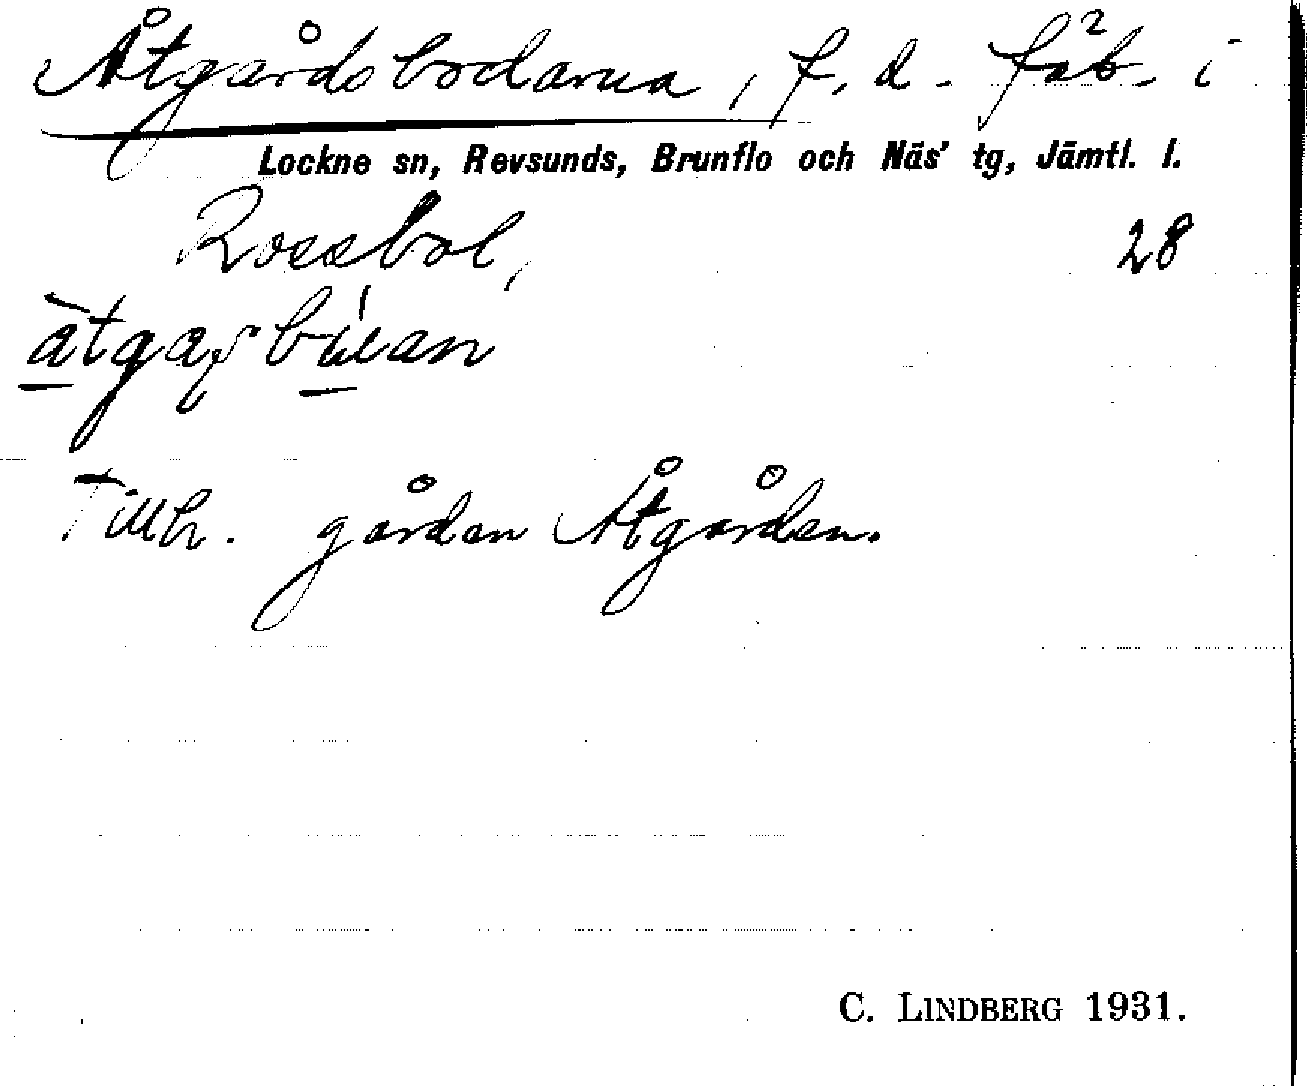 Åtgårdsbodarna, f. d. fäb. i
Lockne sn, Revsunds, Brunflo och Näs' tg, Jämtl. l.
Rossbol, 28
Tillh. gården Åtgården.
C. LINDBERG 1931.